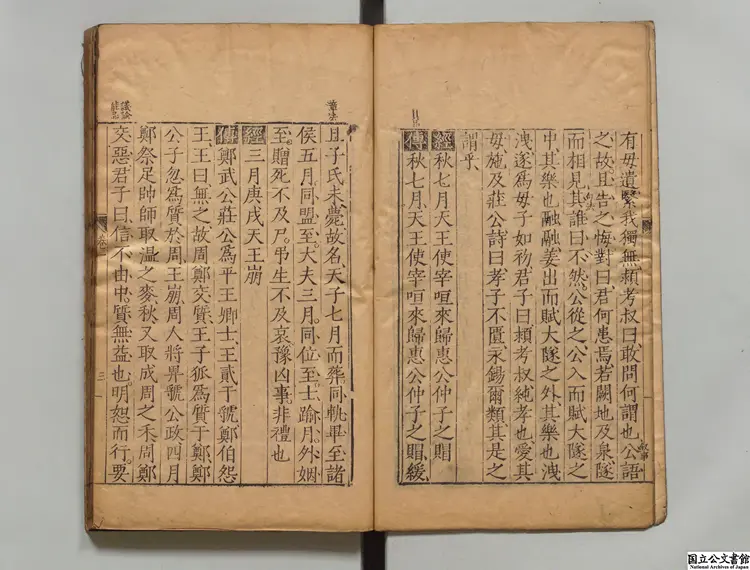 有母遺繄我獨無頴考叔曰敢問何謂也公語
叙事
之故且告之悔對曰君何患焉若闕地及泉隧
而相見其誰曰不然公從之公入而賦大隧之
中其樂也融融姜出而賦大隧之外其樂也洩
洩遂爲母子如初君子曰頴考叔純孝也愛其
母施及莊公詩曰孝子不匱永錫爾類其是之
謂乎
經秋七月天王使宰咺來歸惠公仲子之賵
傳秋七月天王使宰咺來歸惠公仲子之賵緩
且子氏未薨故名天子七月而葬同軌畢至諸
侯五月同盟至大夫三月同位至士踰月外姻
至贈死不及尸弔生不及哀豫凶事非禮也
經三月庚戌天王崩
傳鄭武公莊公爲平王卿士王貳于虢鄭伯怨
王王曰無之故周鄭交質王子狐爲質于鄭鄭
公子忽爲質於周王崩周人將畀虢公政四月
鄭祭足帥師取温之麥秋又取成周之禾周鄭
議論
交惡君子曰信不由中質無益也明恕而行要
三
国立公文書館
National Archives of Japan